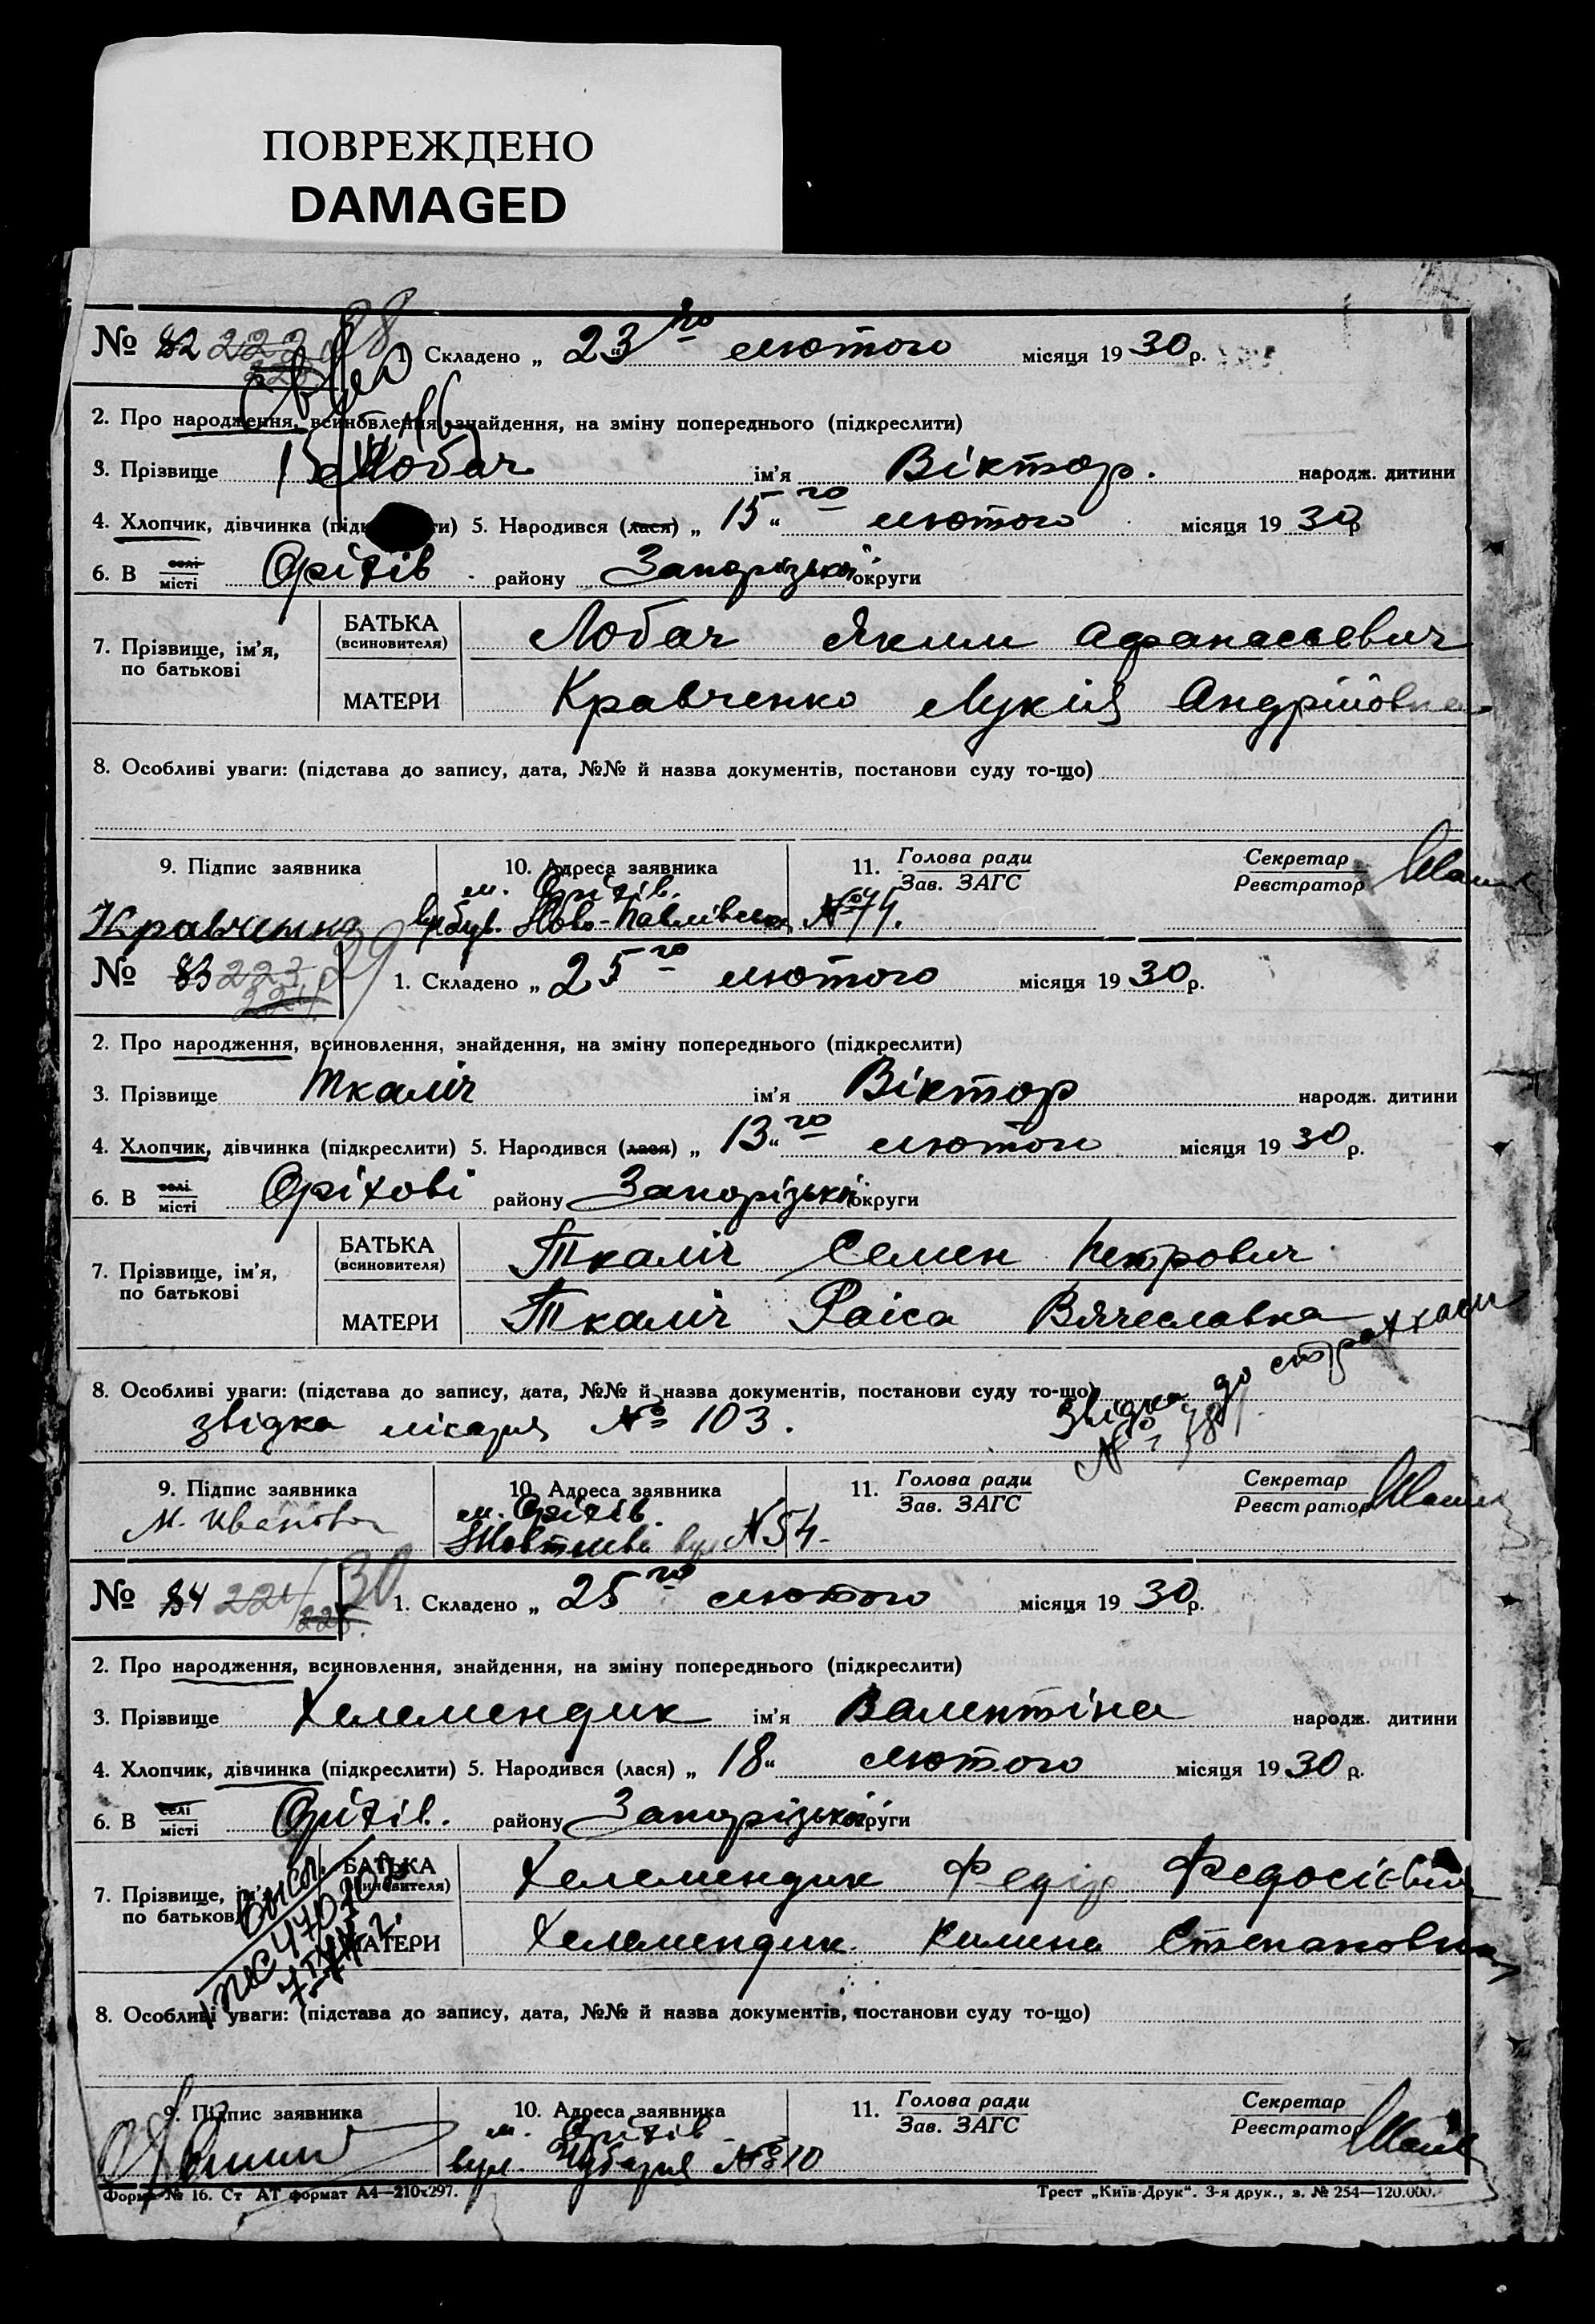 ПОВРЕЖДЕНО
DAMAGED
№ 82 223 28 1. Складено „ 23 го лютого місяця 19 30 р.
2. Про народження, всиновлення, знайдення, на зміну попереднього (підкреслити)
3. Прізвище Лобач ім’я Віктор. народж. дитини
4. Хлопчик, дівчинка 5. Народився (лася) „ 15 го “ лютого місяця 19 30 р
6. В селі місті Оріхів район​у Запорізької округи
7. Прізвище, ім’я, по батькові
БАТЬКА (всиновителя) Лобач Яким Афанасьевич
МАТЕРИ Кравченко Лукія Андрійовна
8. Особливі уваги: (підстава до запису, дата, №№ й назва документів, постанови суду то-що)
9. Підпис заявника 10. Адреса заявника 11. Голова ради Зав. ЗАГС Секретар Реєстратор
м. Оріхів.
Кравченко Ново-Павлівська №74.
№ 83 223 29 1. Складено „ 25 го лютого місяця 19 30 р.
224
2. Про народження, всиновлення, знайдення, на зміну попереднього (підкреслити)
3. Прізвище Ткаліч ім’я Віктор народж. дитини
4. Хлопчик, дівчинка (підкреслити) 5. Народився (лася) „ 13 го “ лютого місяця 19 30 р.
6. В селі місті Оріхові району Запорізької округи
7. Прізвище, ім’я, по батькові
БАТЬКА (всиновителя) Ткаліч Семен Петрович
МАТЕРИ Ткаліч Раіса Вячеславна
8. Особливі уваги: (підстава до запису, дата, №№ й назва документів, постанови суду то-що)
звідка лікаря № 103. Звідка до страхкаси
9. Підпис заявника 10. Адреса заявника 11. Голова ради Зав. ЗАГС Секретар Реєстратор
М. Иванова м. Оріхів.
Жовтнева вул №54.
№ 84 224 30 1. Складено „ 25 го лютого місяця 19 30 р.
225.
2. Про народження, всиновлення, знайдення, на зміну попереднього (підкреслити)
3. Прізвище Хелемендик ім’я Валентіна народж. дитини
4. Хлопчик, дівчинка (підкреслити) 5. Народився (лася) „ 18 “ лютого місяця 19 30 р.
6. В селі місті Оріхів. району Запорізької округи
7. Прізвище, ім’я, по батькові
БАТЬКА (всиновителя) Хелемендик Федір Федосієвич
МАТЕРИ Хелемендик Степановна
8. Особливі уваги: (підстава до запису, дата, №№ й назва документів, постанови суду то-що)
9. Підпис заявника 10. Адреса заявника 11. Голова ради Зав. ЗАГС Секретар Реєстратор
м. Оріхів
вул. Чубаря №10
Форма № 16. Ст АТ формат А4—210х297. Трест „Київ-Друк“. 3-я друк., з. № 254—120.000.